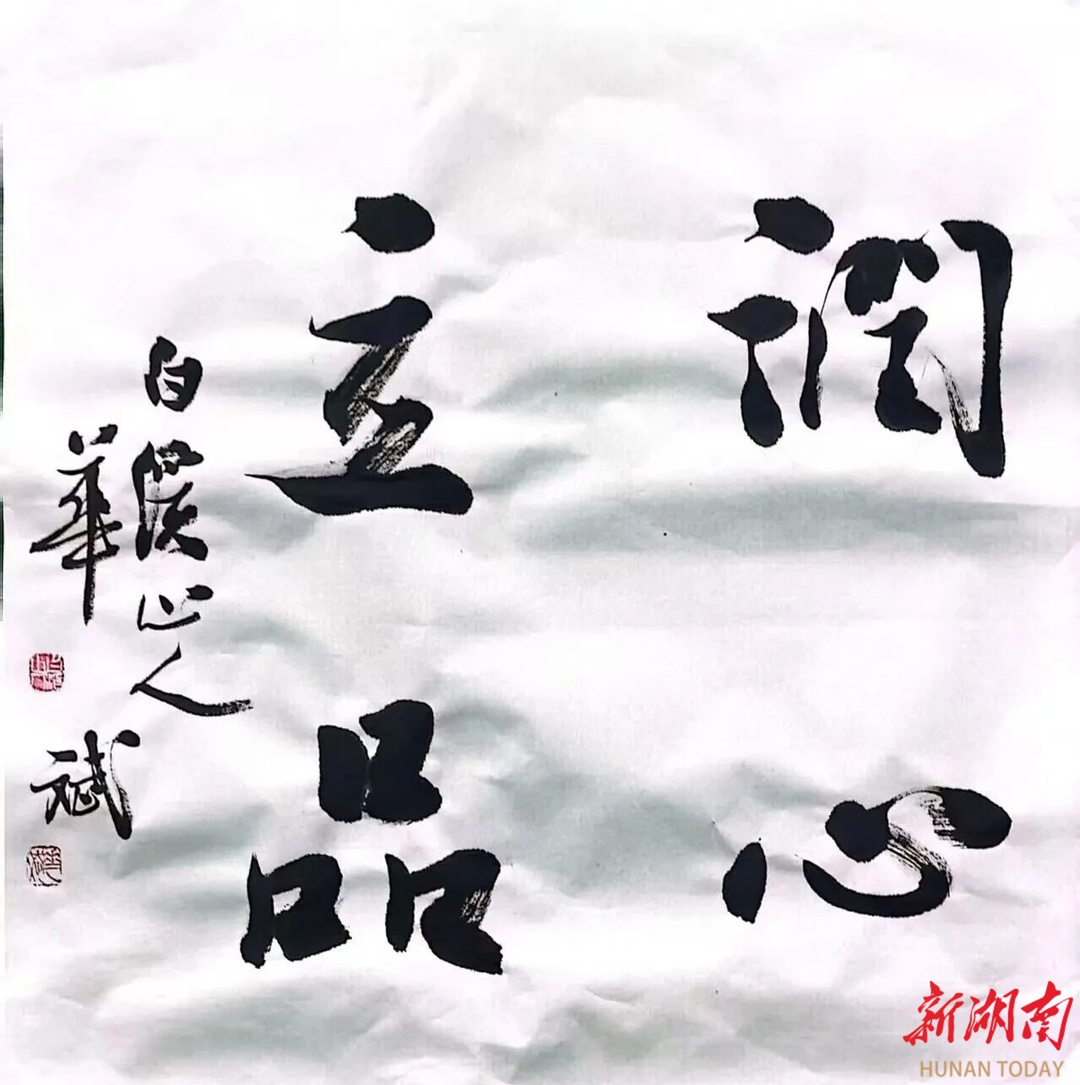 潤心
立品
白溪山人
華斌
新湖南
HUNAN TODAY